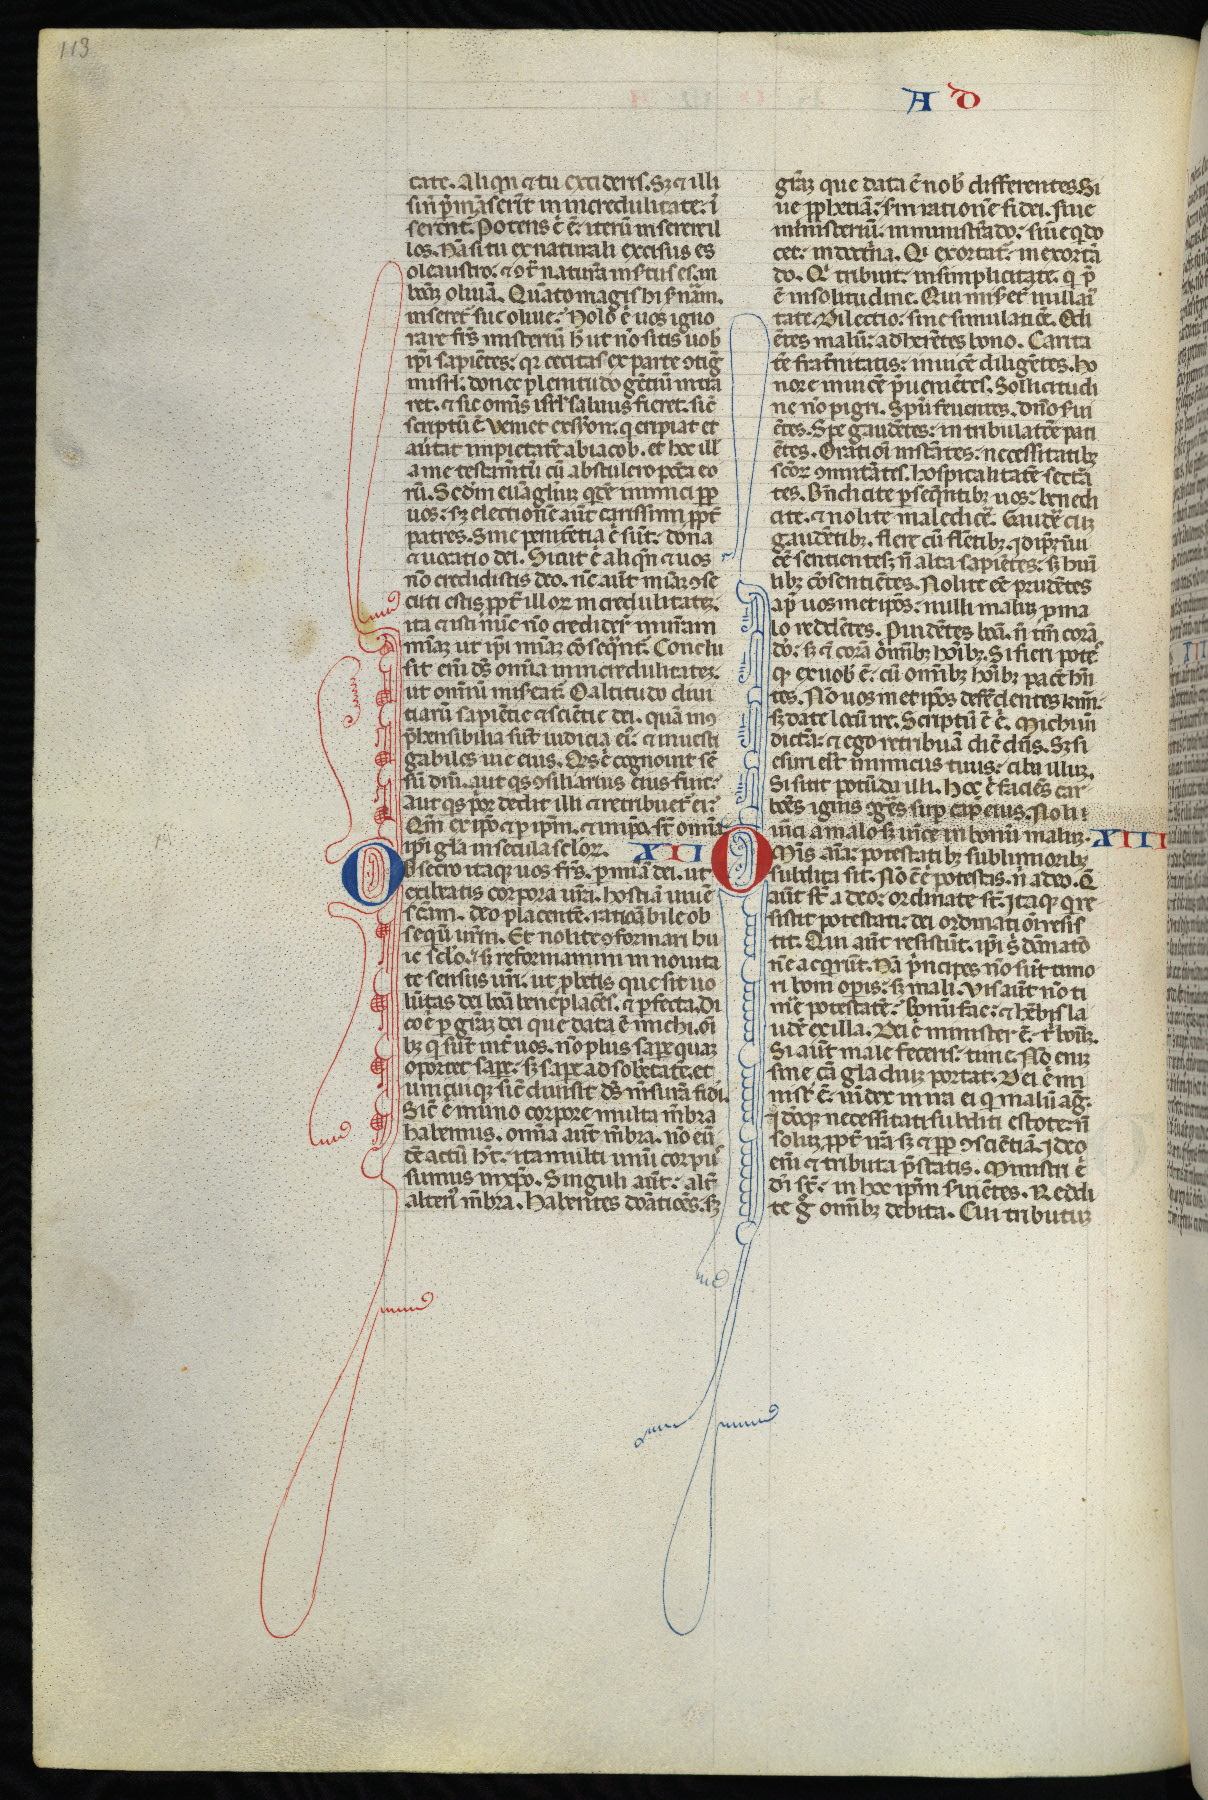 113
A D
tate. Aliqn ⁊ tu excideris. Sꝫ ⁊ illi
si ñ ꝑmãserĩt in incredulitate: ĩ
serent̃. Potens ẽ ẽ: iterũ inserere il
los. Nã si tu ex naturali excisus es
oleastro: ⁊ ɔt̃ naturã insertus es. in
bonã oliuã. Quãto magis hi ẜ nãm.
inseret̃ sue oliue: Nolo ẽ uos igno
rare fr̃s misteriũ h̃ ut nõ sitis uob̃
ip̃i sapiẽtes: qꝛ cecitas ex parte ɔtig̃
in isrl̃: donec plenitudo gẽtiũ intra
ret. ⁊ sic omĩs isrl̃ saluus fieret. sic̃
scriptũ ẽ. Veniet ex syon: q̃ eripiat et
au̾tat impietatẽ ab iacob. et hoc ill̃
a me testam̃tũ cũ abstulero pctã eo
rũ. Sedm̃ euãgliũ qdẽ inimici pp̃
uos: sꝫ electionẽ aũt carissimi ppt̃
patres. Sine penitẽtia ẽ sũt: dona
⁊ uocatio dei. Sicut ẽ aliqñ ⁊ uos
nõ credidistis deo. nc̃ aũt mi̾ãꝫ ɔse
cuti estis ppt̃ illoꝝ incredulitatẽ.
ita ⁊ isti nũc nõ credider̃ in ur̃am
mi̾aꝫ ut ip̃i mi̾aꝫ cõseqñt̃. Conclu
sit em̃ dꝰ omĩa in incredulitateꝫ.
ut omĩũ mis̾eat̃. O altitudo diui
tiarũ sapiẽtie ⁊ sciẽtie dei. quã inɔ
p̃hensibilia sũt iudicia eiꝰ: ⁊ inuesti
gabiles uie eius. Qͥs ẽ cognouit sẽ
sũ dñi. aut qͥs ɔsiliarius eius fuit:
Aut qͥs por̃ dedit illi ⁊ retribuet̃ ei:
Qm̃ ex ip̃o ⁊ ꝑ ip̃m. ⁊ in ip̃o. s̃t omĩa
ip̃i gl̃a in secula sc̃loꝝ. XII
Obsecro itaque uos fr̃s. ꝑ mi̾am dei. ut
exibeatis corpora ur̃a. hostiã uiuẽ
sc̃am. deo placentẽ. rationabile ob
sequiũ ur̃m. Et nolite ɔformari hu
ic sclo. ⁊ sꝫ reformamini in nouita
te sensus ur̃i. ut ꝓbetis que sit uo
lũtas dei bonã beneplacẽs. ⁊ ꝑfecta. Di
co ẽ ꝑ gr̃aꝫ dei que data ẽ michi. oĩ
bꝫ q̃ sũt int̃ uos. nõ plus sapẽ quaꝫ
oportet sapẽ: sꝫ sapẽ ad sobrietatẽ. et
unicuiqꝫ sic̃ diuisit dꝰ m̃surã fidei.
Sic̃ ẽ in uno corpore multa m̃bra
habemus. omĩa aũt m̃bra. nõ eũ
dẽ actũ hñt: ita multi unũ corpus
sumus in xp̃o. Singuli aũt: alt̃
alterius m̃bra. Habentes donatiões. sꝫ
gr̃aꝫ que data ẽ nob̃ differentes. Si
ue ꝓphetiã: sm̃ rationẽ fidei. siue
ministeriũ: in ministrãdo: siue q do
cet: in doctrina. Qͥ exortat̃: in exortã
do. Qͥ tribuit: in simplicitate. q p̃
ẽ in solitudine. Qui mis̾et̃ in illari
tate. Dilectio: sine simulatiõe. Odi
ẽtes malũ: adherẽtes bono. Carita
tẽ fraternitatis: inuicẽ diligẽtes. Ho
nore inuicẽ p̃uenientes. Sollicitudi
ne nõ pigri. Spũ feruentes. dño s̾ui
ẽtes. Spe gaudẽtes: in tribulatiõe pati
ẽtes. Orationi instãtes: necessitatibꝫ
sc̃oꝝ ɔmunicãtes. hospitalitatẽ sectã
tes. Bñdicite ꝑseqũentibꝫ uos: benedi
cite. ⁊ nolite maledicẽ. Gaudẽ cũ
gaudẽtibꝫ. flere cũ flẽtibꝫ. Idip̃m ĩui
cẽ sentientes: ñ alta sapiẽtes: sꝫ humi
libꝫ cõsentiẽtes. Nolite eẽ prudẽtes
ap̃ uosmetip̃os: nulli malũ ꝑ ma
lo reddẽtes. Puidẽtes bonã. ñ tm̃ corã
do: sꝫ ⁊ corã omĩbꝫ hoĩbꝫ. Si fieri potẽ
qͥ ex uob̃ ẽ: cũ omĩbꝫ hoĩbꝫ pacẽ hñ
tes. Nõ uosmetip̃os defẽdentes kmi.
sꝫ date locũ ire. Scriptũ ẽ ẽ. Michi uĩ
dictã: ⁊ ego retribuã dic̃ dñs. Sꝫ si
esurierit inimicus tuus: ciba illuꝫ.
Si sitit potũ da illi. Hoc ẽ faciẽs car
bões ignis ɔges sup̃ cap̃ eius. Noli
uinci a malo sꝫ uĩce in bono maluꝫ. XIII
Omĩs aĩa: potestatibꝫ sublimioribꝫ
subdita sit. Nõ ẽ ẽ potestas. ñ a deo. Q̃
aũt s̃t a deo: ordinate s̃t. Itaqꝫ q re
sistit potestati: dei ordinatiõi resis
tit. Qui aũt resistũt. ip̃i s̾ dãnatiõ
nẽ acqͥrũt. Nã pͥncipes nõ sũt timo
ri boni oꝑis: sꝫ mali. Vis aũt nõ ti
me potestatẽ: bonũ fac: ⁊ hẽbis la
udẽ ex illa. Dei ẽ minister ẽ: t̾ bonũ.
Si aũt male feceris: time. Nõ eniꝫ
sine cã gladiuꝫ portat. Dei ẽ mi
nist̾ ẽ: uĩdex in ira ei q malũ ag̃.
Ideoqꝫ necessitati subditi estote: ñ
soluꝫ ppt̃ irã sꝫ ⁊ pp̃ ɔsciẽtiã. Ideo
em̃ ⁊ tributa p̃statis. Ministri ẽ
di s̃t: in hoc ip̃m s̾uiẽtes. Reddi
te g̃ omĩbꝫ debita. Cui tributuꝫ